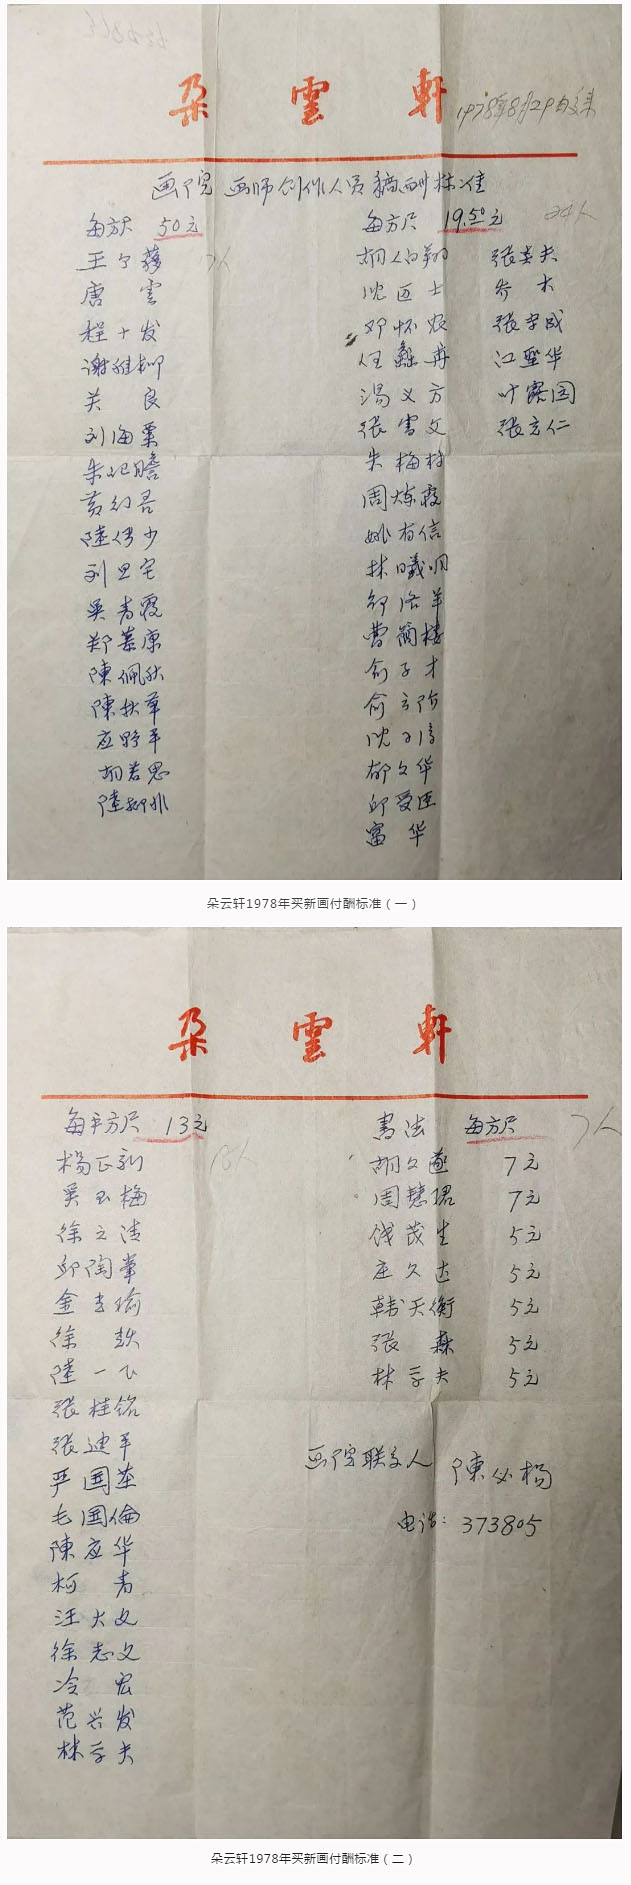 朵雲軒
1978年8月29日
画院画师创作人员稿酬标准
每方尺 50元
王个簃
唐雲
程十发
谢稚柳
关良
刘海粟
朱屺瞻
黄幻吾
陸俨少
刘旦宅
吴青霞
郑慕康
陳佩秋
陳秋草
应野平
胡若思
陸抑非
每方尺 19.50元 24人
胡伯翔 张英夫
沈迈士 乔木
邓怀农 张守成
任 江圣华
汤义方 叶露园
张雪父 张立仁
朱梅村
周炼霞
姚有信
林曦明
邵洛羊
曹简楼
俞子才
俞云阶
沈子丞
郁文华
邱受成
富华
朵云轩1978年买新画付酬标准（一）
朵雲軒
每平方尺 13元
杨正新
吴玉梅
徐元清
邱陶峯
金吉瑜
徐
陸一飞
张桂铭
张迪平
严国基
毛国倫
陳应华
柯青
汪大文
徐志文
冷宏
范兴发
林子夫
書法 每方尺 7人
胡问遂 7元
周慧珺 7元
钱茂生 5元
庄久达 5元
韩天衡 5元
张森 5元
林子夫 5元
画院联系人 陳必杨
电话：373805
朵云轩1978年买新画付酬标准（二）